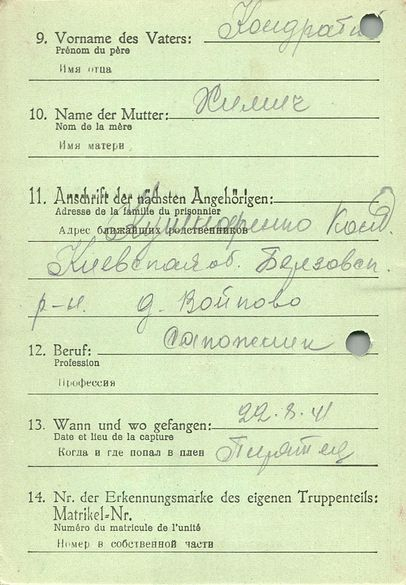 9. Vorname des Vaters: Кондратий
Prénom du père
Имя отца
10. Name der Mutter: Химич
Nom de la mère
Имя матери
11. Anschrift der nächsten Angehörigen:
Adresse de la famille du prisonnier
Адрес ближайших родственников Кушнаренко Конд
Киевская об. Березовск.
р-н. д. Войпово
12. Beruf: Сапожник
Profession
Профессия
13. Wann und wo gefangen: 22-8-41
Date et lieu de la capture
Когда и где попал в плен Пирятин
14. Nr. der Erkennungsmarke des eigenen Truppenteils:
Matrikel-Nr.
Numéro du matricule de l'unité
Номер в собственной части